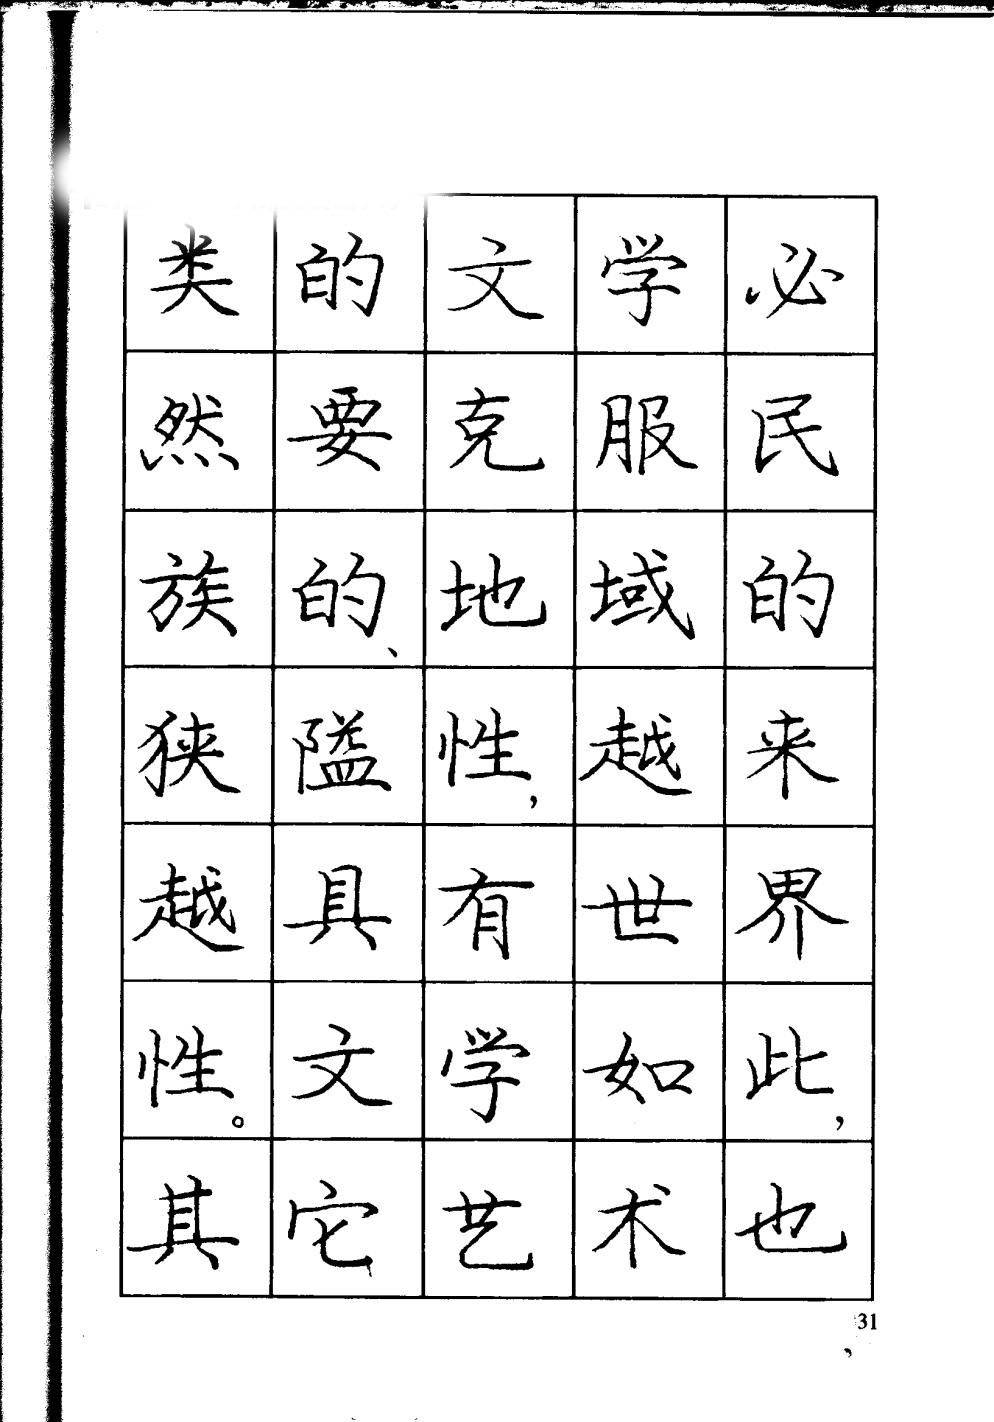 类的文学必
然要克服民
族的、地域的
狭隘性,越来
越具有世界
性。文学如此,
其它艺术也
31